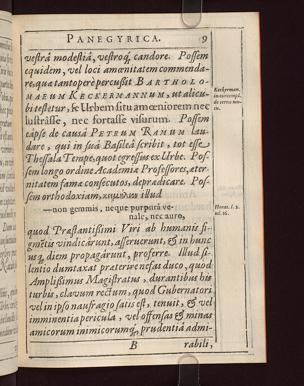 PANEGYRICA. 9
vestrâ modestiâ, vestroq́; candore. Possem
equidem, vel loci amœnitatem commenda-
re, quâ tantoperè percussit BARTHOLO-
MAEUM KECKERMANNUM, ut alicu-
bi testetur, se Urbem situ amœniorem nec
lustrâsse, nec fortasse visurum. Possem
eâpse de causâ PETRUM RAMUM lau-
dare, qui in suâ Basileâ scribit, tot esse
Thessala Tempe, quot egressus ex Urbe. Pos-
sem longo ordine Academiæ Professores, æter-
nitatem famæ consecutos, depraedicare. Pos-
sem orthodoxiam, illud
—non gemmis, neque purpurâ ve-
nale, nec auro,
quod Præstantissimi Viri ab humanis fi-
gmētis vindicârunt, asseruerunt, & in hunc
usq́; diem propagârunt, proferre. Illud si-
lentio dumtaxat præterire nefas duco, quod
Amplissimus Magistratus, durantibus his
turbis, clavum rectum, quod Gubernatori
vel in ipso naufragio satis est, tenuit, & vel
imminentia pericula, vel offensas & minas
amicorum inimicorumq́; prudentiâ admi-
B rabili,
Keckerman.
Horat. l. 2.
od. 16.